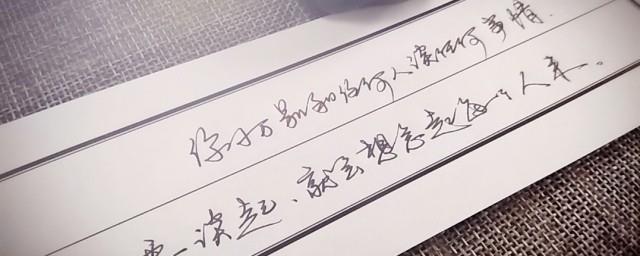 你千万别和任何人谈任何事情.
要一谈起、就会想念起每个人来。